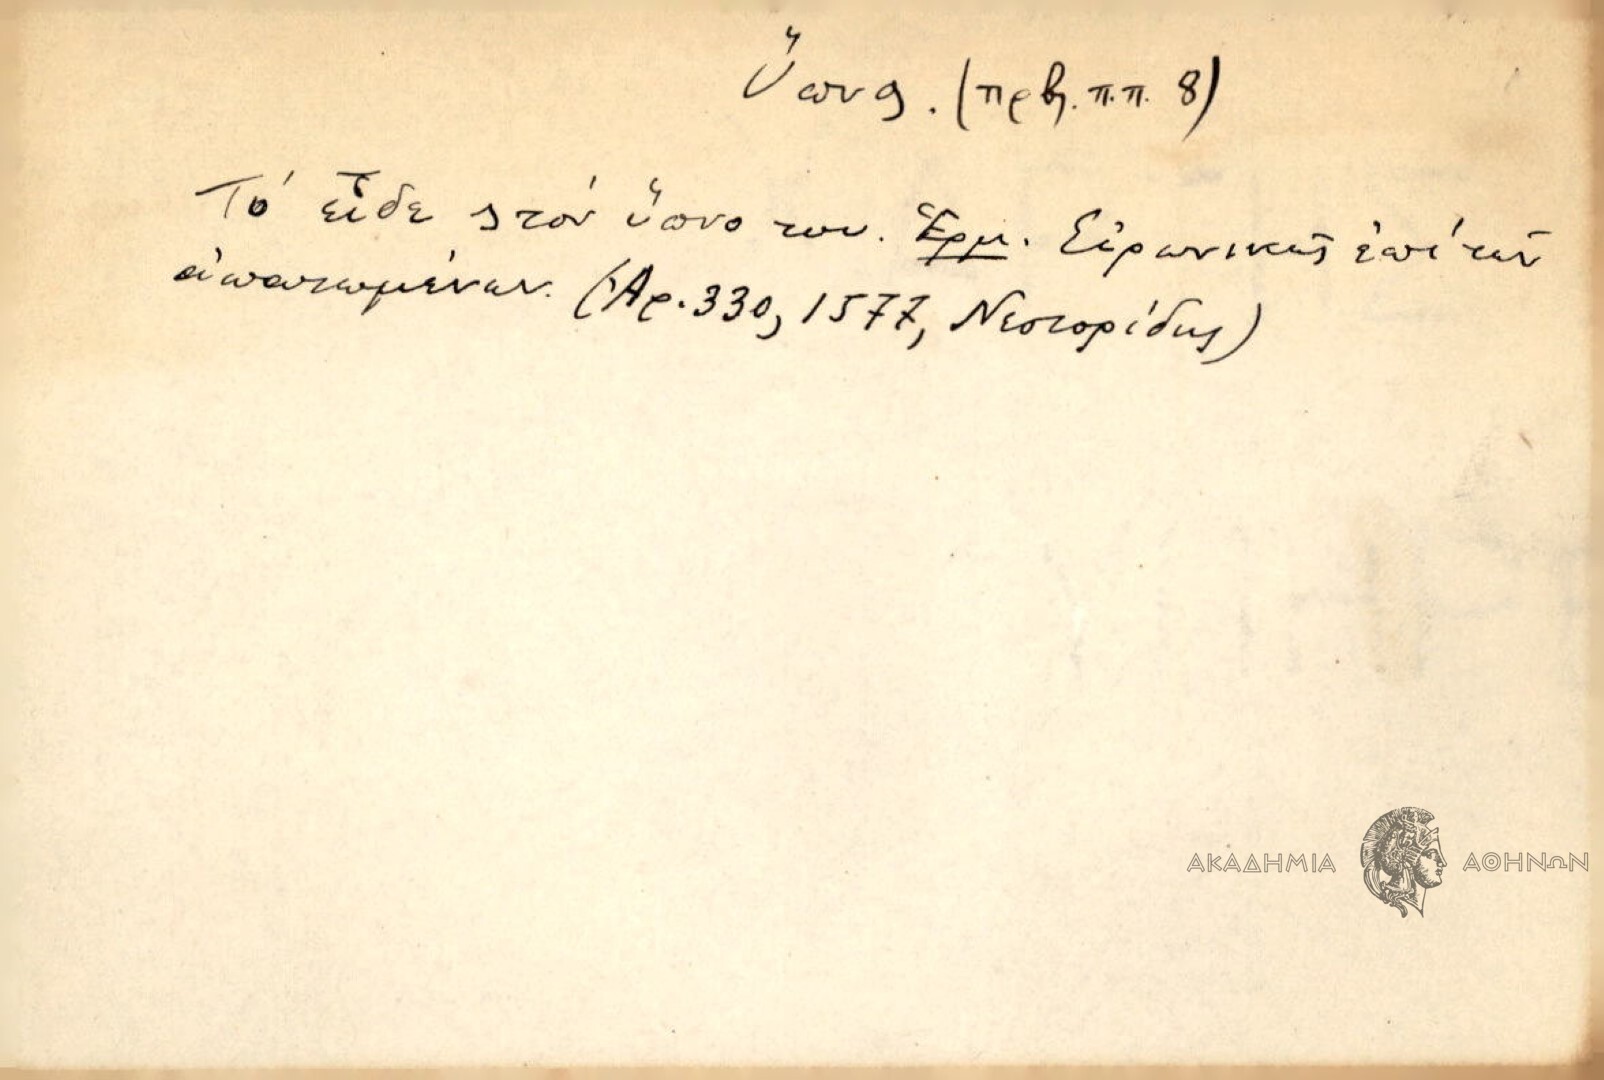 Ὕπνος. (πρβλ. π.π. 8)
Τό εἶδε στόν ὕπνο του. Ἑρμ. Εἰρωνικῶς ἐπί τῶν
ἀπατωμένων. (Ἀρ. 330, 1577, Νεστορίδης)
ΑΚΑΔΗΜΙΑ ΑΘΗΝΩΝ